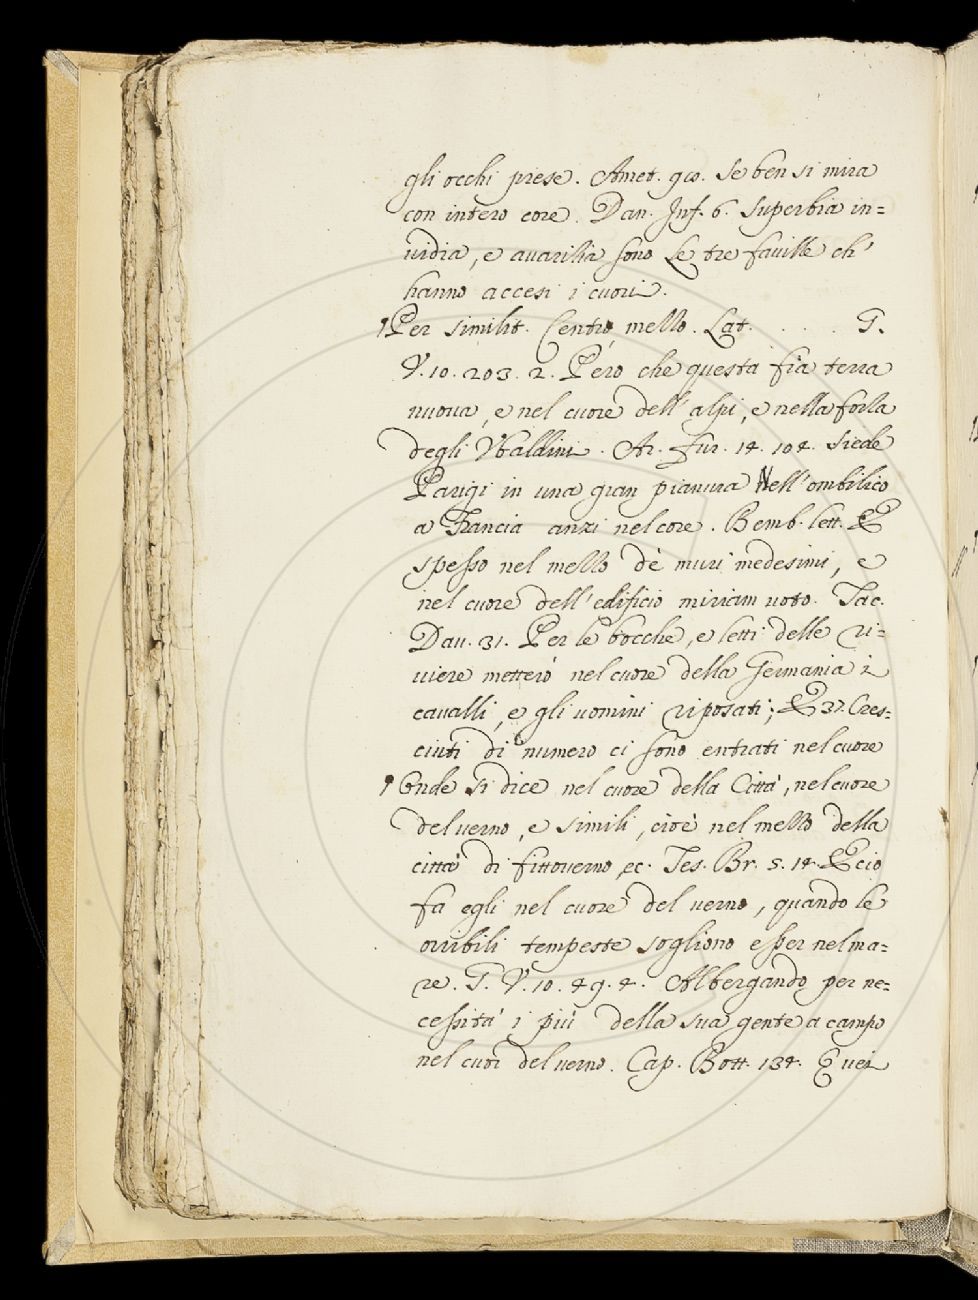 gli occhi prese. Amet. 90. Se ben si mira
con intero core. Dan. Inf. 6. Superbia in=
uidia, e auarizia sono le tre fauille ch'
hanno accesi i cuori.
¶Per similit. Centro, mezzo. Lat. . . . . G.
V. 10. 203. 2. Però che questa fia terra
nuoua, e nel cuore dell'alpi, e nella forza
degli Vbaldini. Ar. Fur. 14. 104. Siede
Parigi in una gran pianura Nell'ombilico
a Francia anzi nel core. Bemb. lett. E
spesso nel mezzo dè muri medesimi, e
nel cuore dell'edificio miriam uoto. Tac.
Dau. 31. Per le bocche, e letti delle ri=
uiere metterò nel cuore della Germania i
caualli, e gli uomini riposati; E 37. Cres=
ciuti di numero ci sono entrati nel cuore
¶ Onde si dice nel cuore della Città, nel cuore
del uerno, e simili, cioè nel mezzo della
città di fitto uerno ec. Tes. Br. 5. 14. E cio
fa egli nel cuore del uerno, quando le
orribili tempeste sogliono esser nel ma=
re. G. V. 10. 49. 4. Albergando per ne=
cessità i più della sua gente a campo
nel cuor del uerno. Cap. Bott. 134. E uei